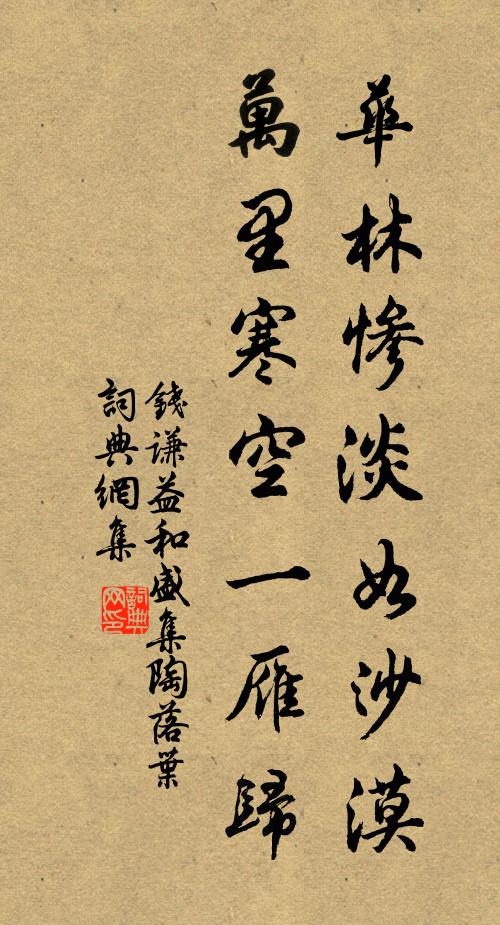 華林惨淡如沙漠
萬里寒空一雁歸
錢谦益和盛集陶落葉
詞典網集
詞典网印